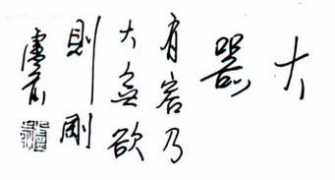 大
器
有容乃
大無欲
則剛